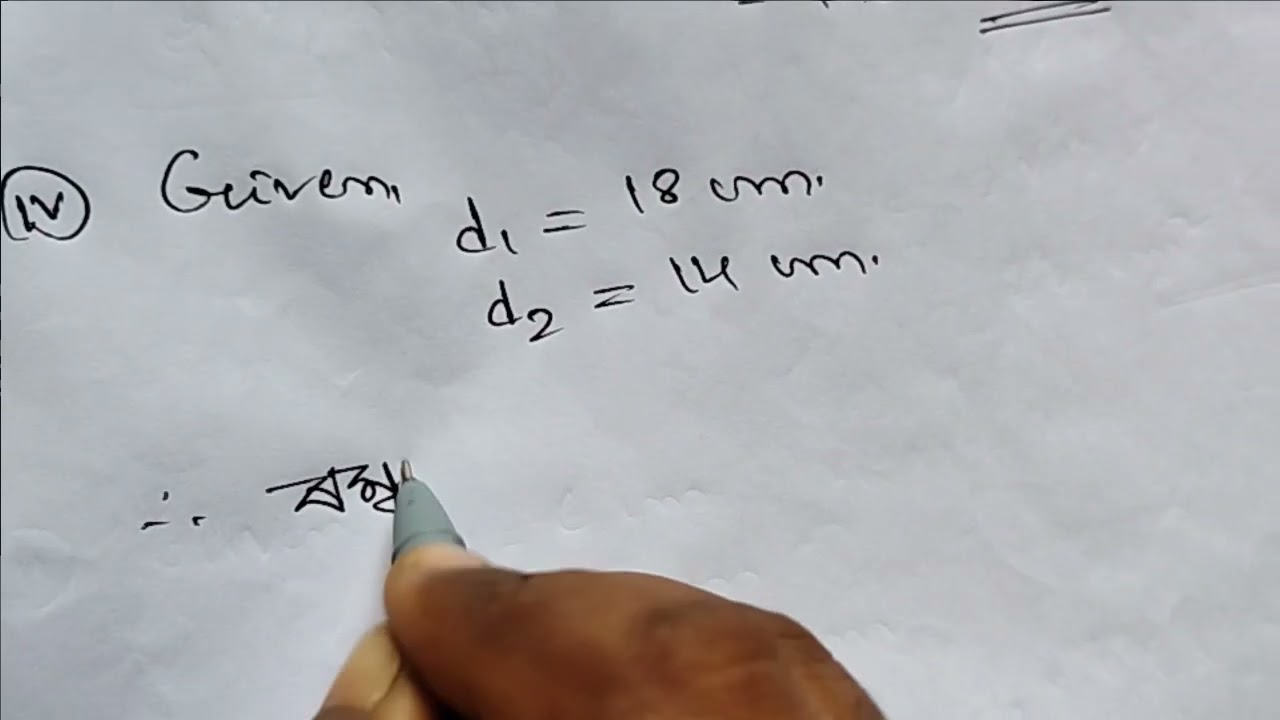 (iv) Given,
d₁ = 18 cm.
d₂ = 14 cm.
∴